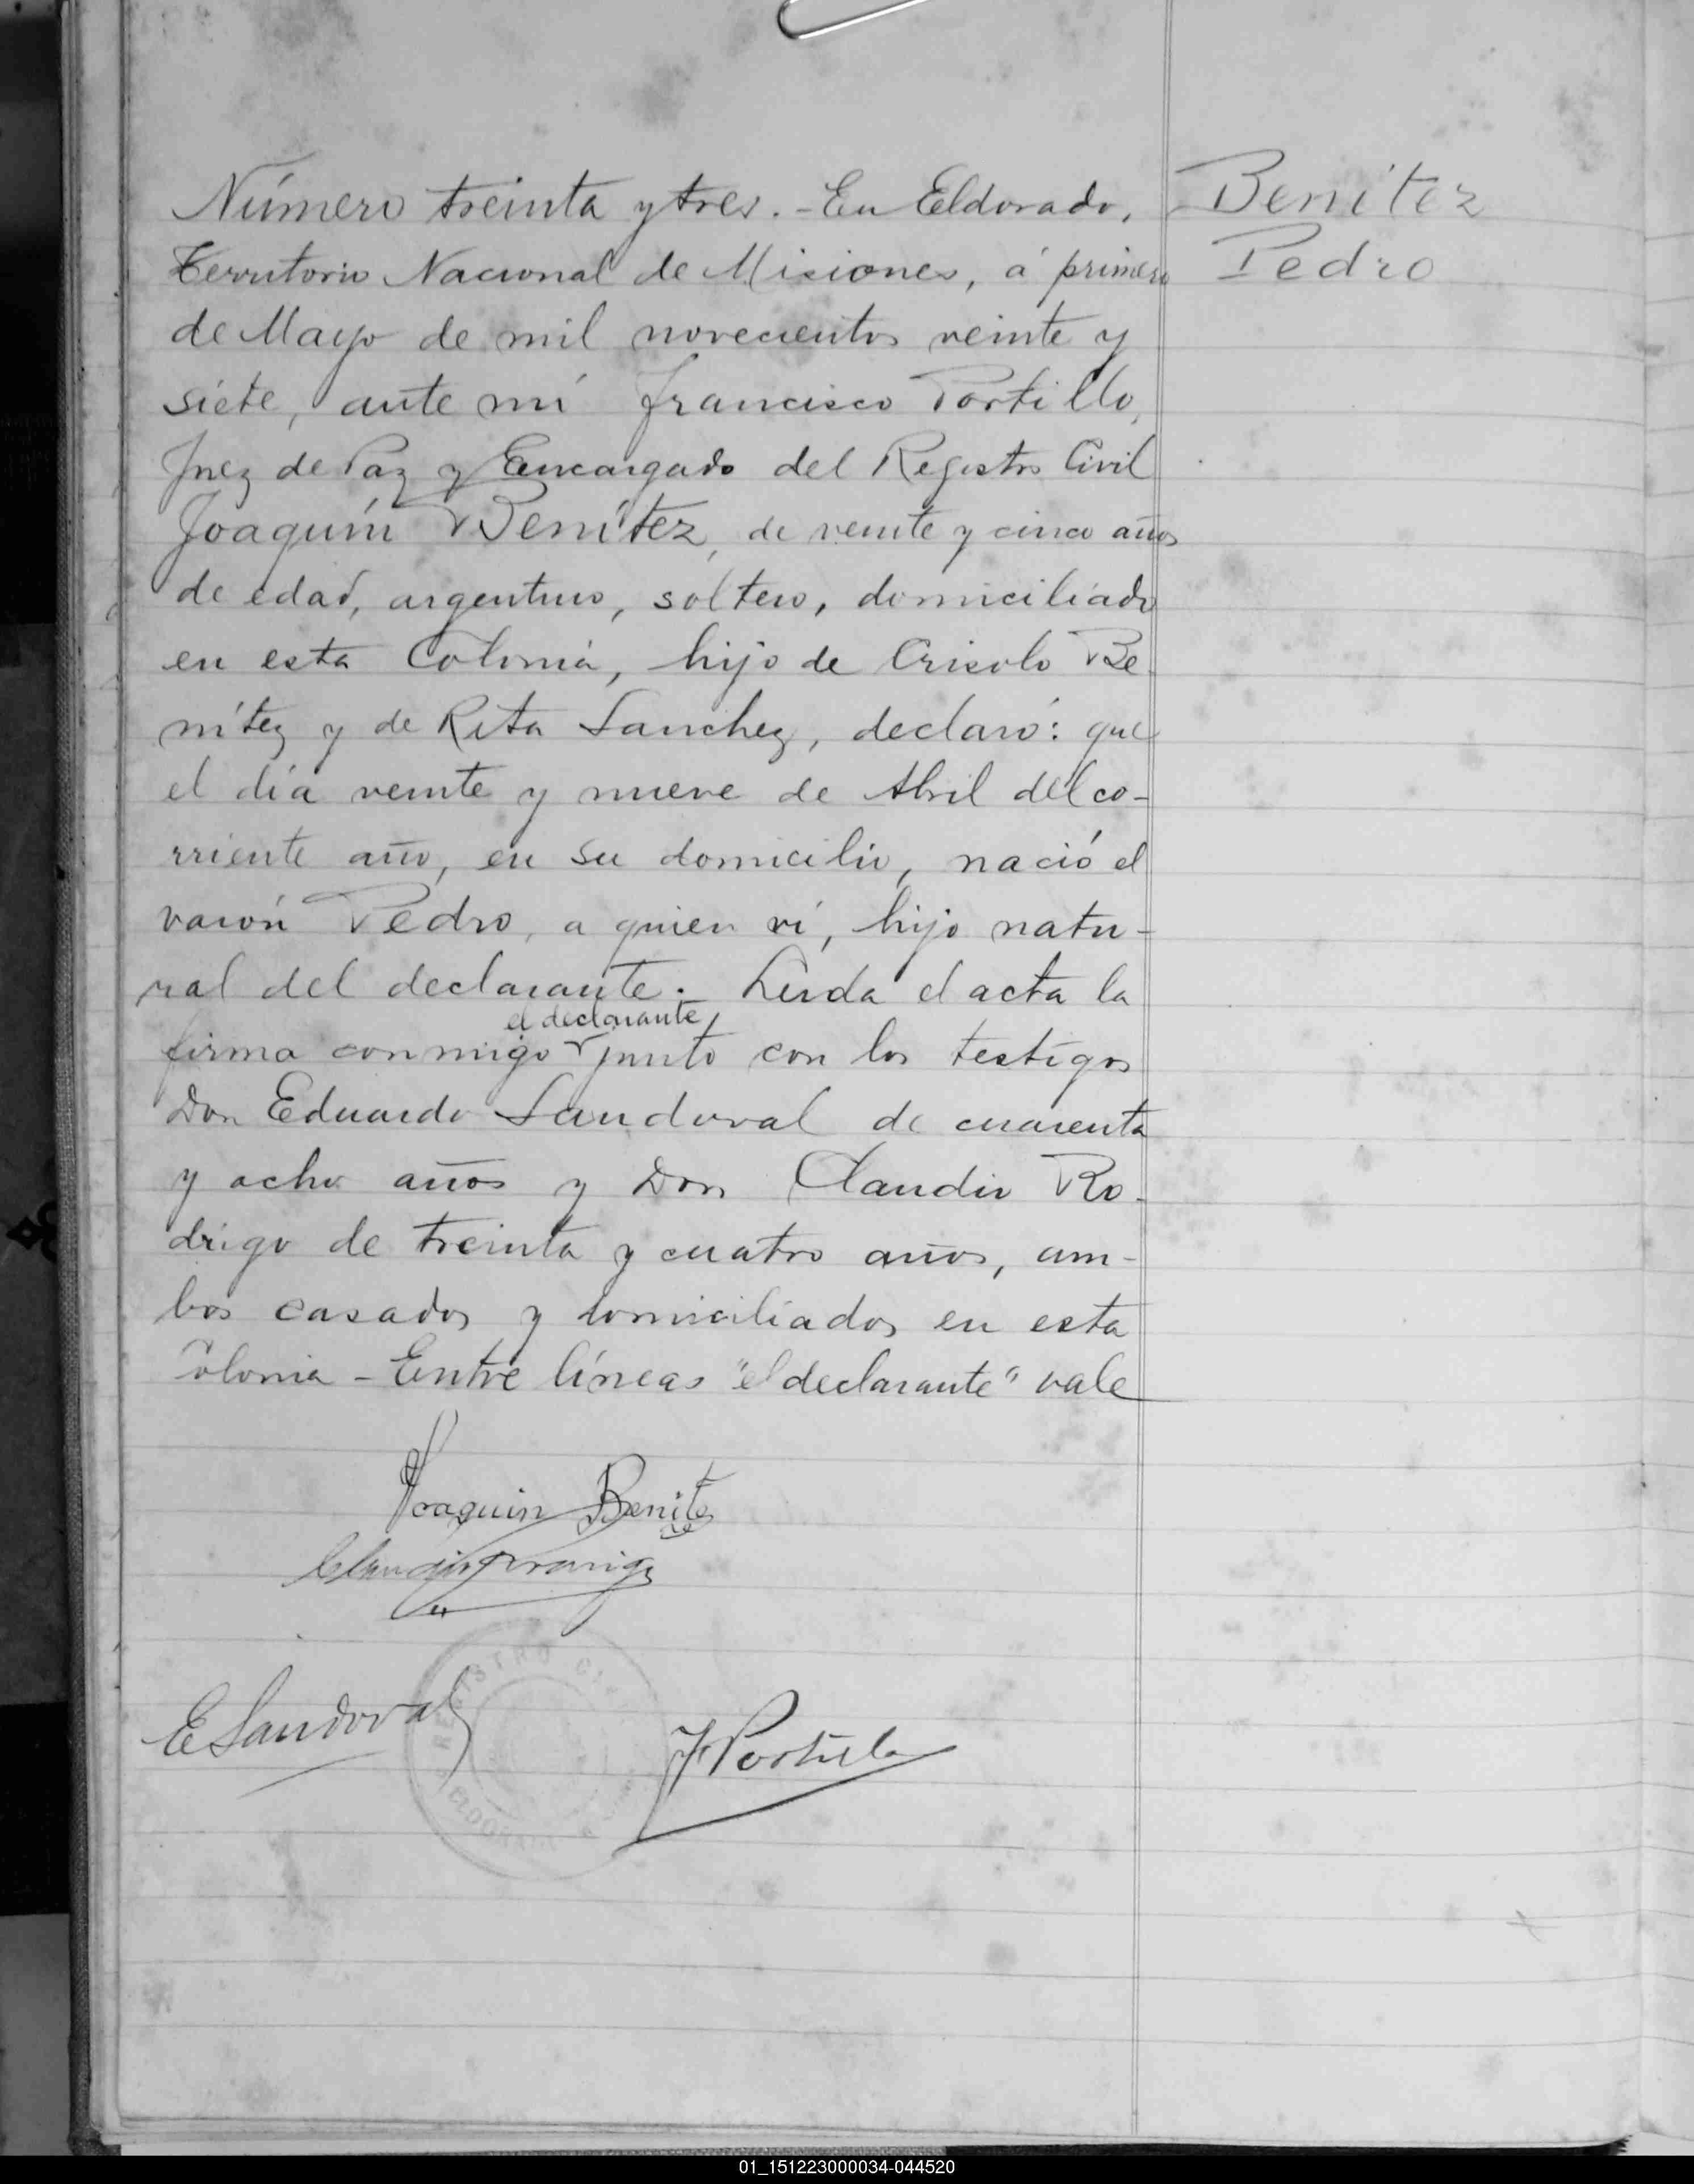 Número treinta y tres. - En Eldorado,
Territorio Nacional de Misiones, á primero
de Mayo de mil novecientos veinte y
siete, ante mí Francisco Portillo,
Juez de Paz y Encargado del Registro Civil
Joaquín Benítez, de veinte y cinco años
de edad, argentino, soltero, domiciliado
en esta Colonia, hijo de Crisolo Be-
nítez y de Rita Sanchez, declaró: que
el día veinte y nueve de Abril del co-
rriente año, en su domicilio, nació el
varón Pedro, a quien ví, hijo natu-
ral del declarante. - Leída el acta la
el declarante,
firma conmigo junto con los testigos
Don Eduardo Sandoval de cuarenta
y ocho años y Don Claudio Ro-
drigo de treinta y cuatro años, am-
bos casados y domiciliados en esta
Colonia - Entre líneas "el declarante" vale
Benítez
Pedro
Joaquin Benitez
E Sandoval
F Portillo
REGISTRO CIVIL
ELDORADO
01_151223000034-044520